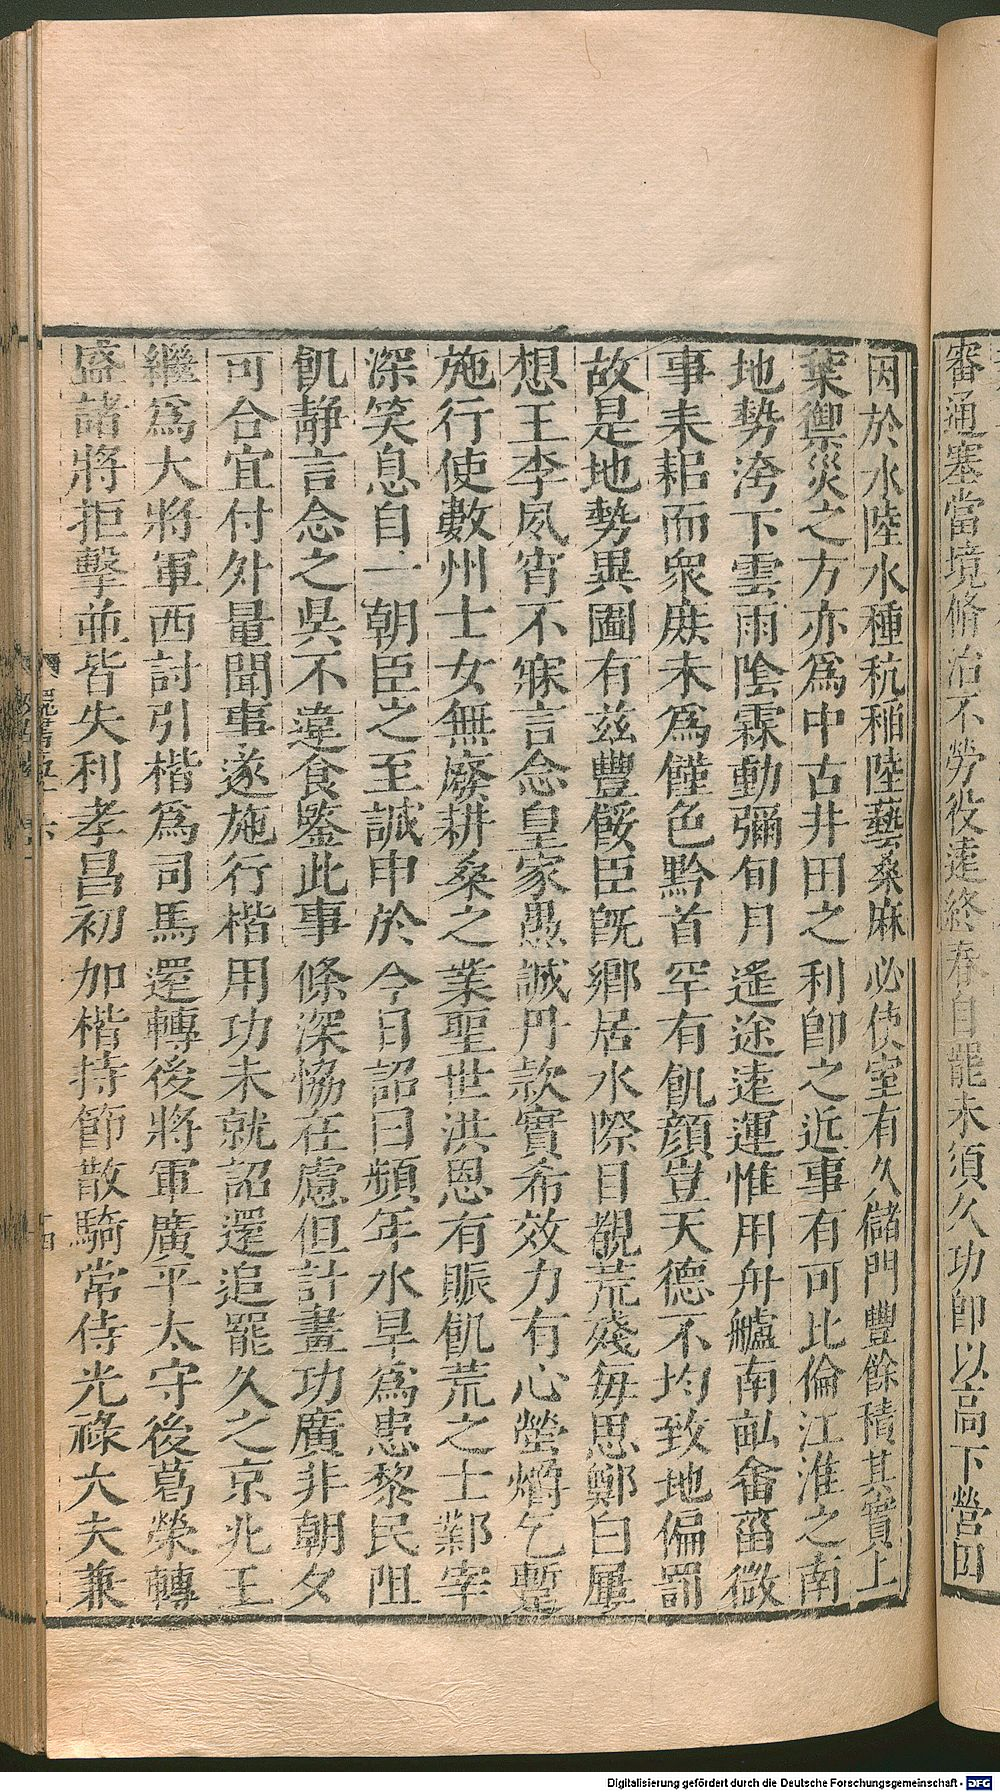 審通塞當境脩治不勞役遠終春自罷未須久功即以高下營田
因於水陸水種秔稻陸藝桑麻必使室有久儲門豐餘積其實上
葉禦災之方亦爲中古井田之利即之近事有可比倫江淮之南
地勢洿下雲雨陰霖動彌旬月遙途遠運惟用舟艫南畝畬菑微
事耒耜而衆庶未爲饉色黔首罕有飢顔豈天德不均致地偏罰
故是地勢異圖有茲豐餒臣旣鄉居水際目覩荒殘每思鄭白屢
想王李夙宵不寐言念皇家愚誠丹款實希效力有心螢爝乞暫
施行使數州士女無廢耕桑之業聖世洪恩有賑飢荒之士鄴宰
深笑息自一朝臣之至誠申於今日詔曰頻年水旱爲患黎民阻
飢静言念之吳不違食鑒此事條深恊在慮但計畫功廣非朝夕
可合宜付外量聞事遂施行楷用功未就詔還追罷久之京兆王
繼爲大將軍西討引楷爲司馬還轉後將軍廣平太守後葛榮轉
盛諸將拒擊並皆失利孝昌初加楷持節散騎常侍光祿大夫兼
Digitalisierung gefördert durch die Deutsche Forschungsgemeinschaft - DFG